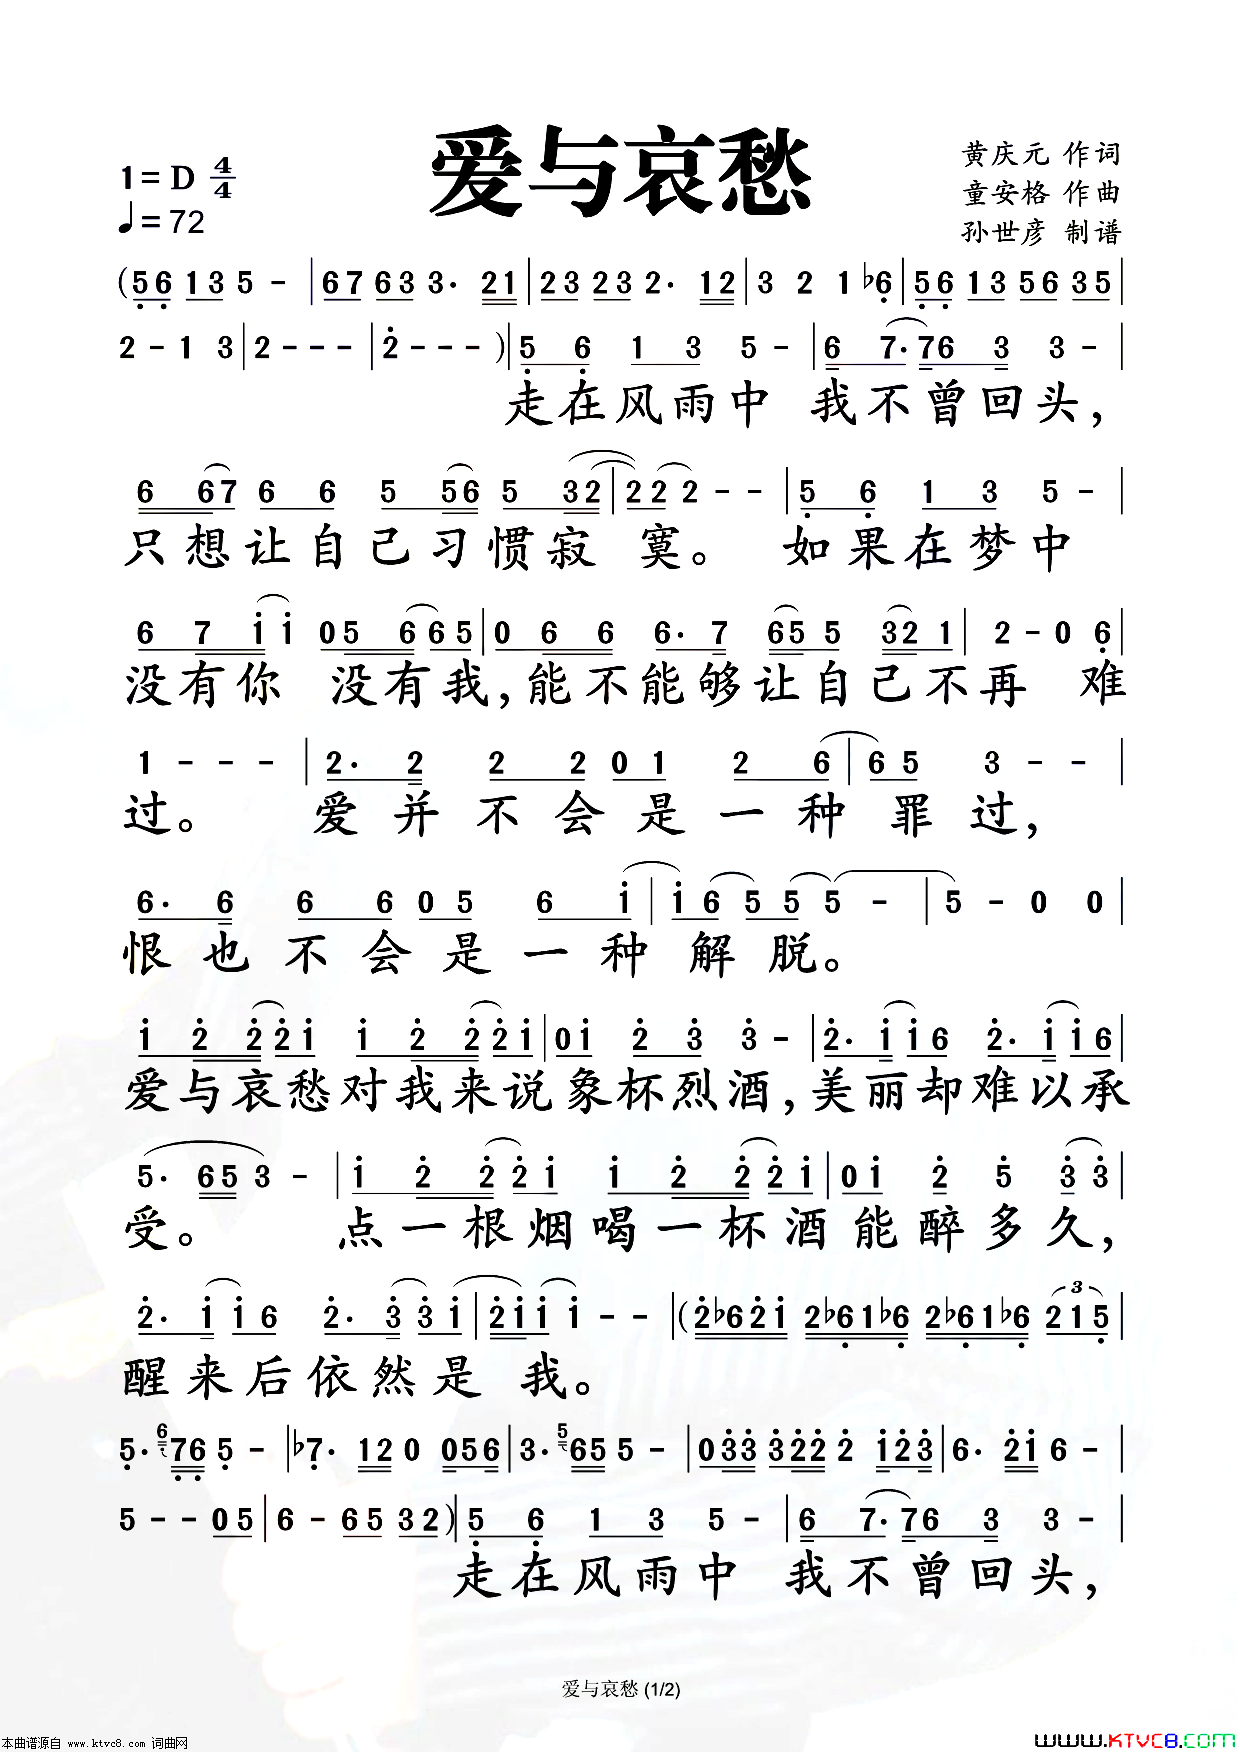 爱与哀愁
黄庆元 作词
1= D 4/4
童安格 作曲
♩= 72
孙世彦 制谱
(56 135 - | 67 633 3. 21 | 23 23 2. 12 | 3 2 1 ♭6 | 56 13 56 35 |
2 - 1 3 | 2 - - - | 2 - - - ) | 5 6 1 3 5 - | 6 7. 76 3 3 - |
走在风雨中 我不曾回头，
6 67 6 6 5 56 5 32 | 22 2 - - | 5 6 1 3 5 - |
只想让自己习惯寂 寞。 如果在梦中
6 7 i i 05 6 65 | 0 6 6 6. 7 65 5 32 1 | 2 - 0 6 |
没有你 没有我，能不能够让自己不再 难
1 - - - | 2. 2 2 2 0 1 2 6 | 65 3 - - |
过。 爱并不会是一种罪过，
6. 6 6 6 0 5 6 i | i 6 5 5 5 - | 5 - 0 0 |
恨也不会是一种解 脱。
i 2 2 2 i i 2 2 2 i | 0 i 2 3 3 - | 2. i i 6 2. i i 6 |
爱与哀愁对我来说象杯烈酒，美丽却难以承
5. 65 3 - | i 2 2 2 i i 2 2 2 i | 0 i 2 5 3 3 |
受。 点一根烟喝一杯酒能醉多久，
2. i i 6 2. 3 3 i | 2 i i i - - | (2♭62i 2♭61♭6 2♭61♭6 3 215 |
醒来后依然是 我。
5. 6 76 5 - | ♭7. 12 0 056 | 3. 5 65 5 - | 033 322 2 123 | 6. 2i 6 - |
5 - - 05 | 6 - 65 32 ) | 5 6 1 3 5 - | 6 7. 76 3 3 - |
走在风雨中 我不曾回头，
爱与哀愁 (1/2)
本曲谱源自 www.ktvc8.com 词曲网
www.KTVC8.com